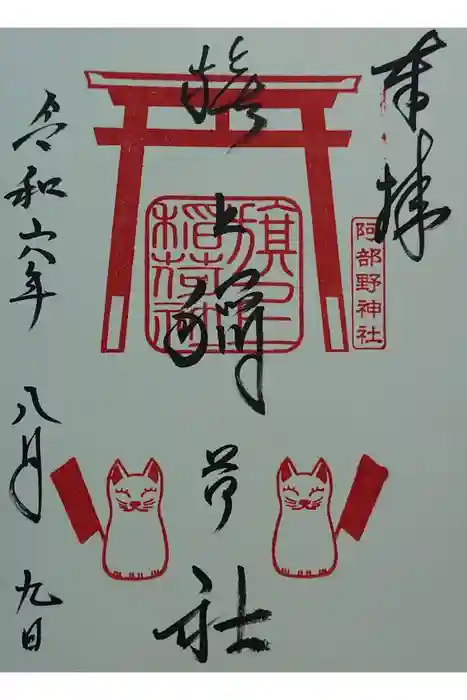 奉拝
阿部野神社
旗上稲荷社
令和六年八月九日